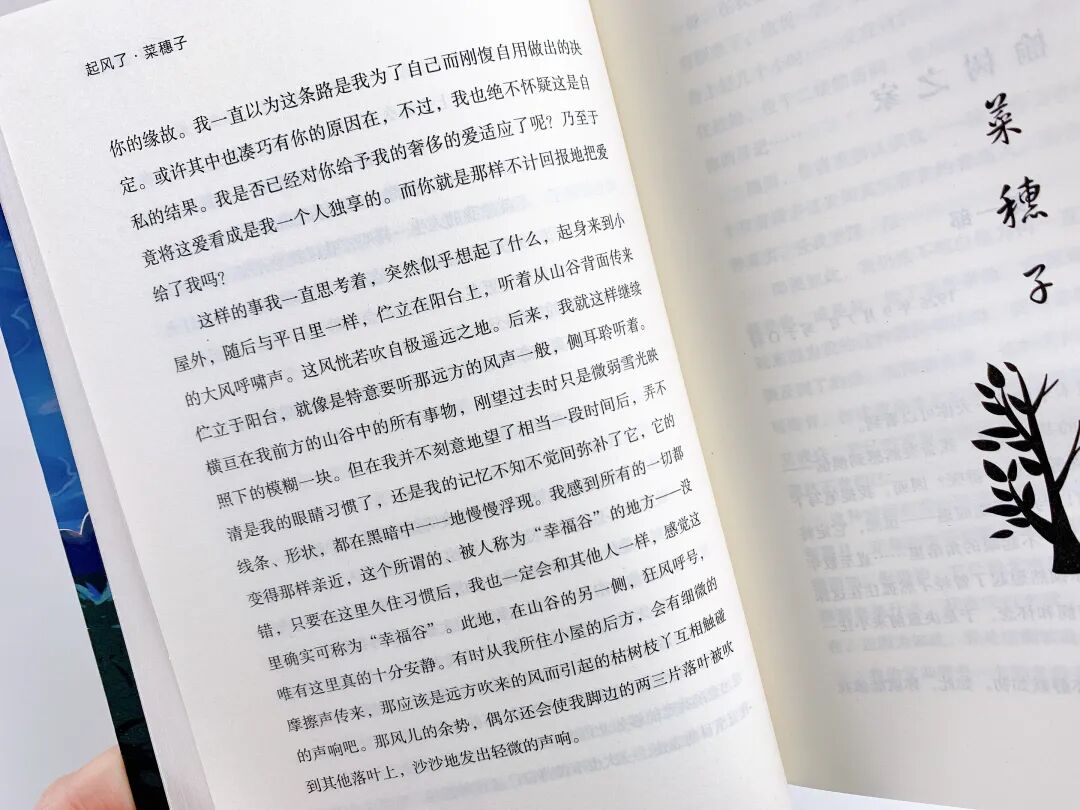 起风了·菜穗子
你的缘故。我一直以为这条路是我为了自己而刚愎自用做出的决
定。或许其中也凑巧有你的原因在，不过，我也绝不怀疑这是自
私的结果。我是否已经对你给予我的奢侈的爱适应了呢？乃至于
竟将这爱看成是我一个人独享的。而你就是那样不计回报地把爱
给了我吗？
这样的事我一直思考着，突然似乎想起了什么，起身来到小
屋外，随后与平日里一样，伫立在阳台上，听着从山谷背面传来
的大风呼啸声。这风恍若吹自极遥远之地。后来，我就这样继续
伫立于阳台，就像是特意要听那远方的风声一般，侧耳聆听着。
横亘在我前方的山谷中的所有事物，刚望过去时只是微弱雪光映
照下的模糊一块。但在我并不刻意地望了相当一段时间后，弄不
清是我的眼睛习惯了，还是我的记忆不知不觉间弥补了它，它的
线条、形状，都在黑暗中一一地慢慢浮现。我感到所有的一切都
变得那样亲近，这个所谓的、被人称为“幸福谷”的地方——没
错，只要在这里久住习惯后，我也一定会和其他人一样，感觉这
里确实可称为“幸福谷”。此地，在山谷的另一侧，狂风呼号，
唯有这里真的十分安静。有时从我所住小屋的后方，会有细微的
摩擦声传来，那应该是远方吹来的风而引起的枯树枝丫互相触碰
的声响吧。那风儿的余势，偶尔还会使我脚边的两三片落叶被吹
到其他落叶上，沙沙地发出轻微的声响。
菜穗子